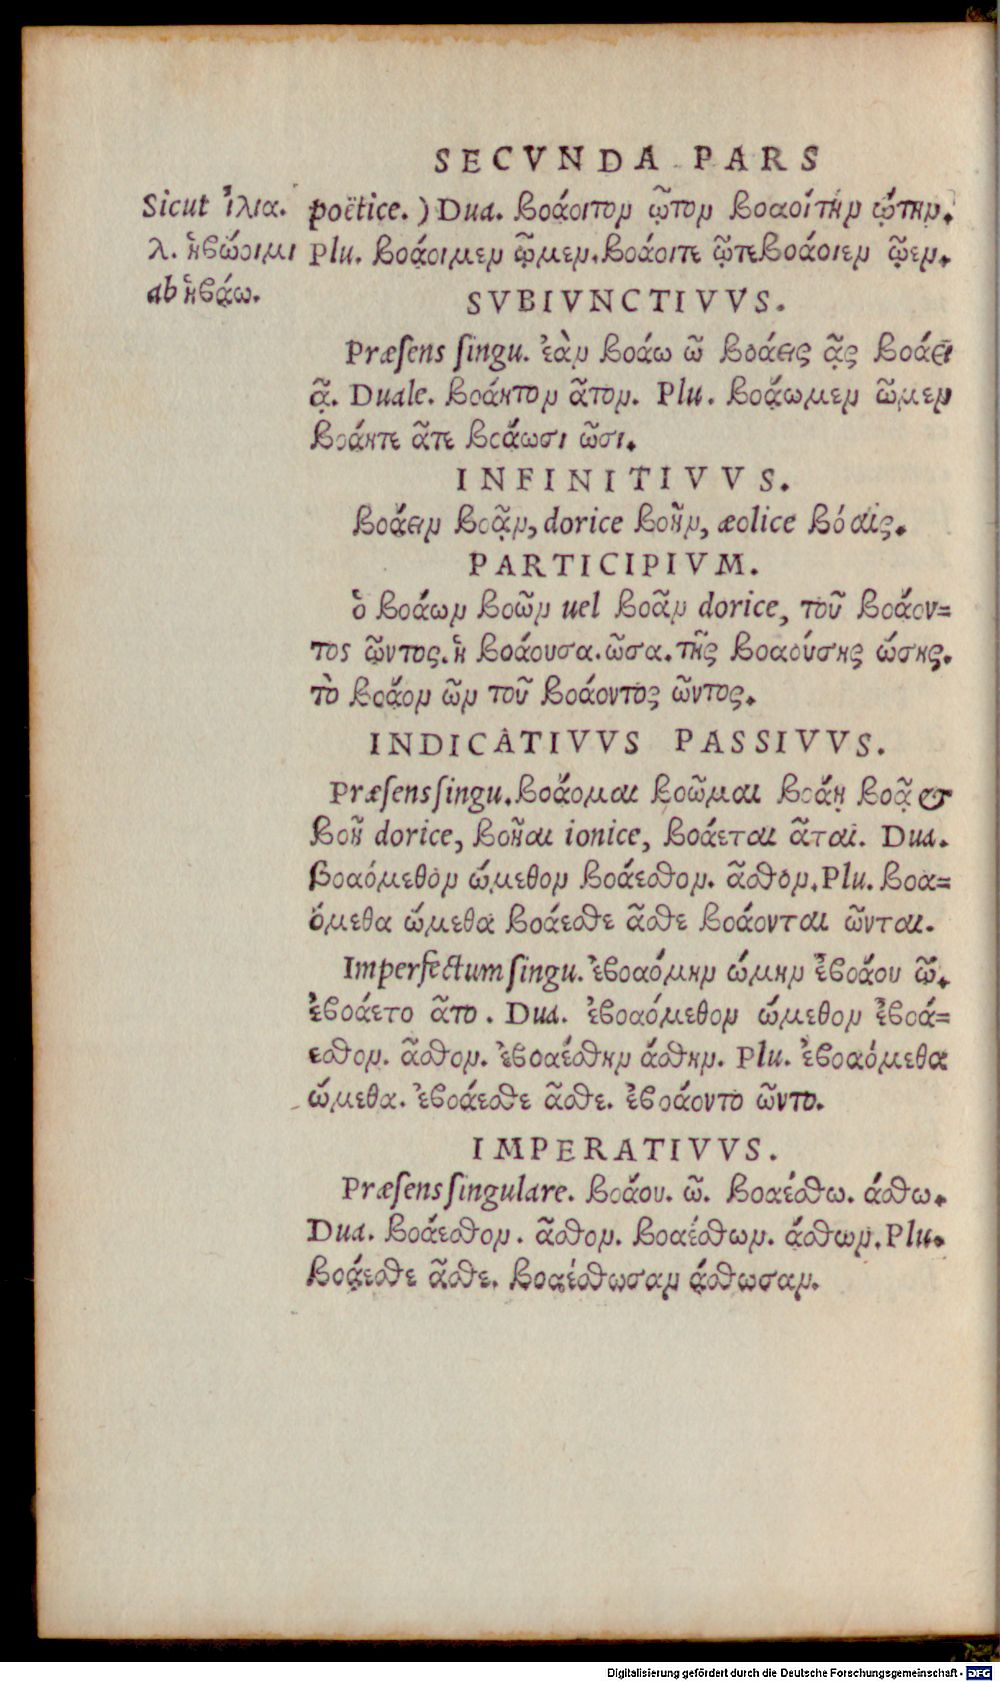 SECVNDA PARS
Sicut ἰλια.
λ. ἡβώοιμι
ab ἡβάω.
poëtice.) Dua. βοάοιτον ῷτον βοαοίτην ῴτην.
Plu. βοάοιμεν ῷμεν. βοάοιτε ῷτε βοάοιεν ῷεν.
SVBIVNCTIVVS.
Præſens ſingu. ἐὰν βοάω ῶ βοάεις ᾷς βοάει
ᾷ. Duale. βοάητον ᾶτον. Plu. βοάωμεν ῶμεν
βοάητε ᾶτε βοάωσι ῶσι.
INFINITIVVS.
βοάειν βοᾷν, dorice βοῆν, æolice βόαις.
PARTICIPIVM.
ὁ βοάων βοῶν uel βοᾶν dorice, τοῦ βοάον=
τος ῶντος. ἡ βοάουσα. ῶσα. τῆς βοαούσης ώσης.
τὸ βοάον ῶν τοῦ βοάοντος ῶντος.
INDICATIVVS PASSIVVS.
Præſens ſingu. βοάομαι βοῶμαι βοάῃ βοᾷ &
βοῇ dorice, βοῆαι ionice, βοάεται ᾶται. Dua.
βοαόμεθον ώμεθον βοάεσθον. ᾶσθον. Plu. βοα=
όμεθα ώμεθα βοάεσθε ᾶσθε βοάονται ῶνται.
Imperfectum ſingu. ἐβοαόμην ώμην ἐβοάου ῶ.
ἐβοάετο ᾶτο. Dua. ἐβοαόμεθον ώμεθον ἐβοά=
εσθον. ᾶσθον. ἐβοαέσθην άσθην. Plu. ἐβοαόμεθα
ώμεθα. ἐβοάεσθε ᾶσθε. ἐβοάοντο ῶντο.
IMPERATIVVS.
Præſens ſingulare. βοάου. ῶ. βοαέσθω. άσθω.
Dua. βοάεσθον. ᾶσθον. βοαέσθων. άσθων. Plu.
βοάεσθε ᾶσθε. βοαέσθωσαν άσθωσαν.
Digitalisierung gefördert durch die Deutsche Forschungsgemeinschaft - DFG